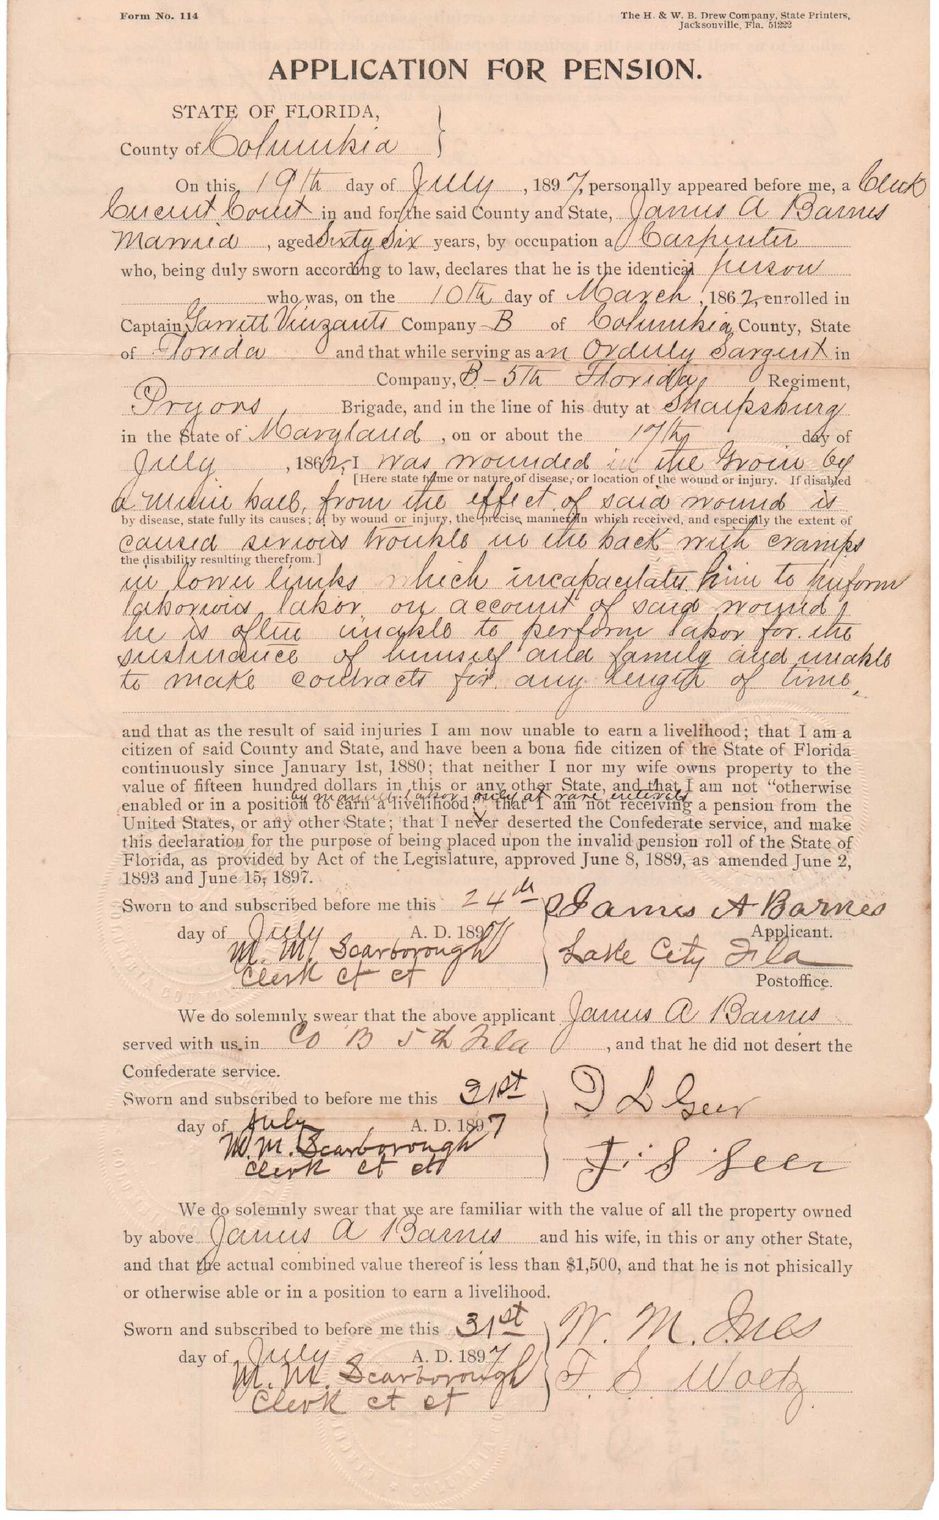 Form No. 114
The H. & W. B. Drew Company, State Printers,
Jacksonville, Fla. 51222
APPLICATION FOR PENSION.
STATE OF FLORIDA,
County of Columbia
On this 19th day of July, 1897, personally appeared before me, a Clerk
Circuit Court in and for the said County and State, James A Barnes
Married, aged Sixty Six years, by occupation a Carpenter
who, being duly sworn according to law, declares that he is the identical person
who was, on the 10th day of March, 1862, enrolled in
Captain Garrett Vinzants Company B of Columbia County, State
of Florida and that while serving as an Orduly Sargent in
Company, B - 5th Florida Regiment,
Pryors, Brigade, and in the line of his duty at Sharpsburg
in the State of Maryland, on or about the 17th day of
July, 1862, I was wounded in the Groin by
[Here state name or nature of disease, or location of the wound or injury. If disabled
a minie ball, from the effect of said wound is
by disease, state fully its causes; if by wound or injury, the precise manner in which received, and especially the extent of
caused serious trouble in the back with cramps
the disability resulting therefrom.]
in lower limbs which incapacitates him to perform
laborious labor on account of said wound
he is often unable to perform labor for the
sustinance of himself and family and unable
to make contracts for any length of time,
and that as the result of said injuries I am now unable to earn a livelihood; that I am a
citizen of said County and State, and have been a bona fide citizen of the State of Florida
continuously since January 1st, 1880; that neither I nor my wife owns property to the
value of fifteen hundred dollars in this or any other State, and that I am not "otherwise
by manual labor, only at rare intervels
enabled or in a position to earn a livelihood; that I am not receiving a pension from the
United States, or any other State; that I never deserted the Confederate service, and make
this declaration for the purpose of being placed upon the invalid pension roll of the State of
Florida, as provided by Act of the Legislature, approved June 8, 1889, as amended June 2,
1893 and June 15, 1897.
Sworn to and subscribed before me this 24th James A Barnes
day of July A. D. 1897 Applicant.
M. M. Scarborough Lake City Fla
Clerk ct ct Postoffice.
We do solemnly swear that the above applicant James A Barnes
served with us in Co B 5th Fla, and that he did not desert the
Confederate service.
Sworn and subscribed to before me this 31st D L Geer
day of July A. D. 1897
M. M. Scarborough
Clerk ct ct S Geer
We do solemnly swear that we are familiar with the value of all the property owned
by above James A Barnes and his wife, in this or any other State,
and that the actual combined value thereof is less than $1,500, and that he is not phisically
or otherwise able or in a position to earn a livelihood.
Sworn and subscribed to before me this 31st W. M. Ives
day of July A. D. 1897
M. M. Scarborough F. S.
Clerk ct ct